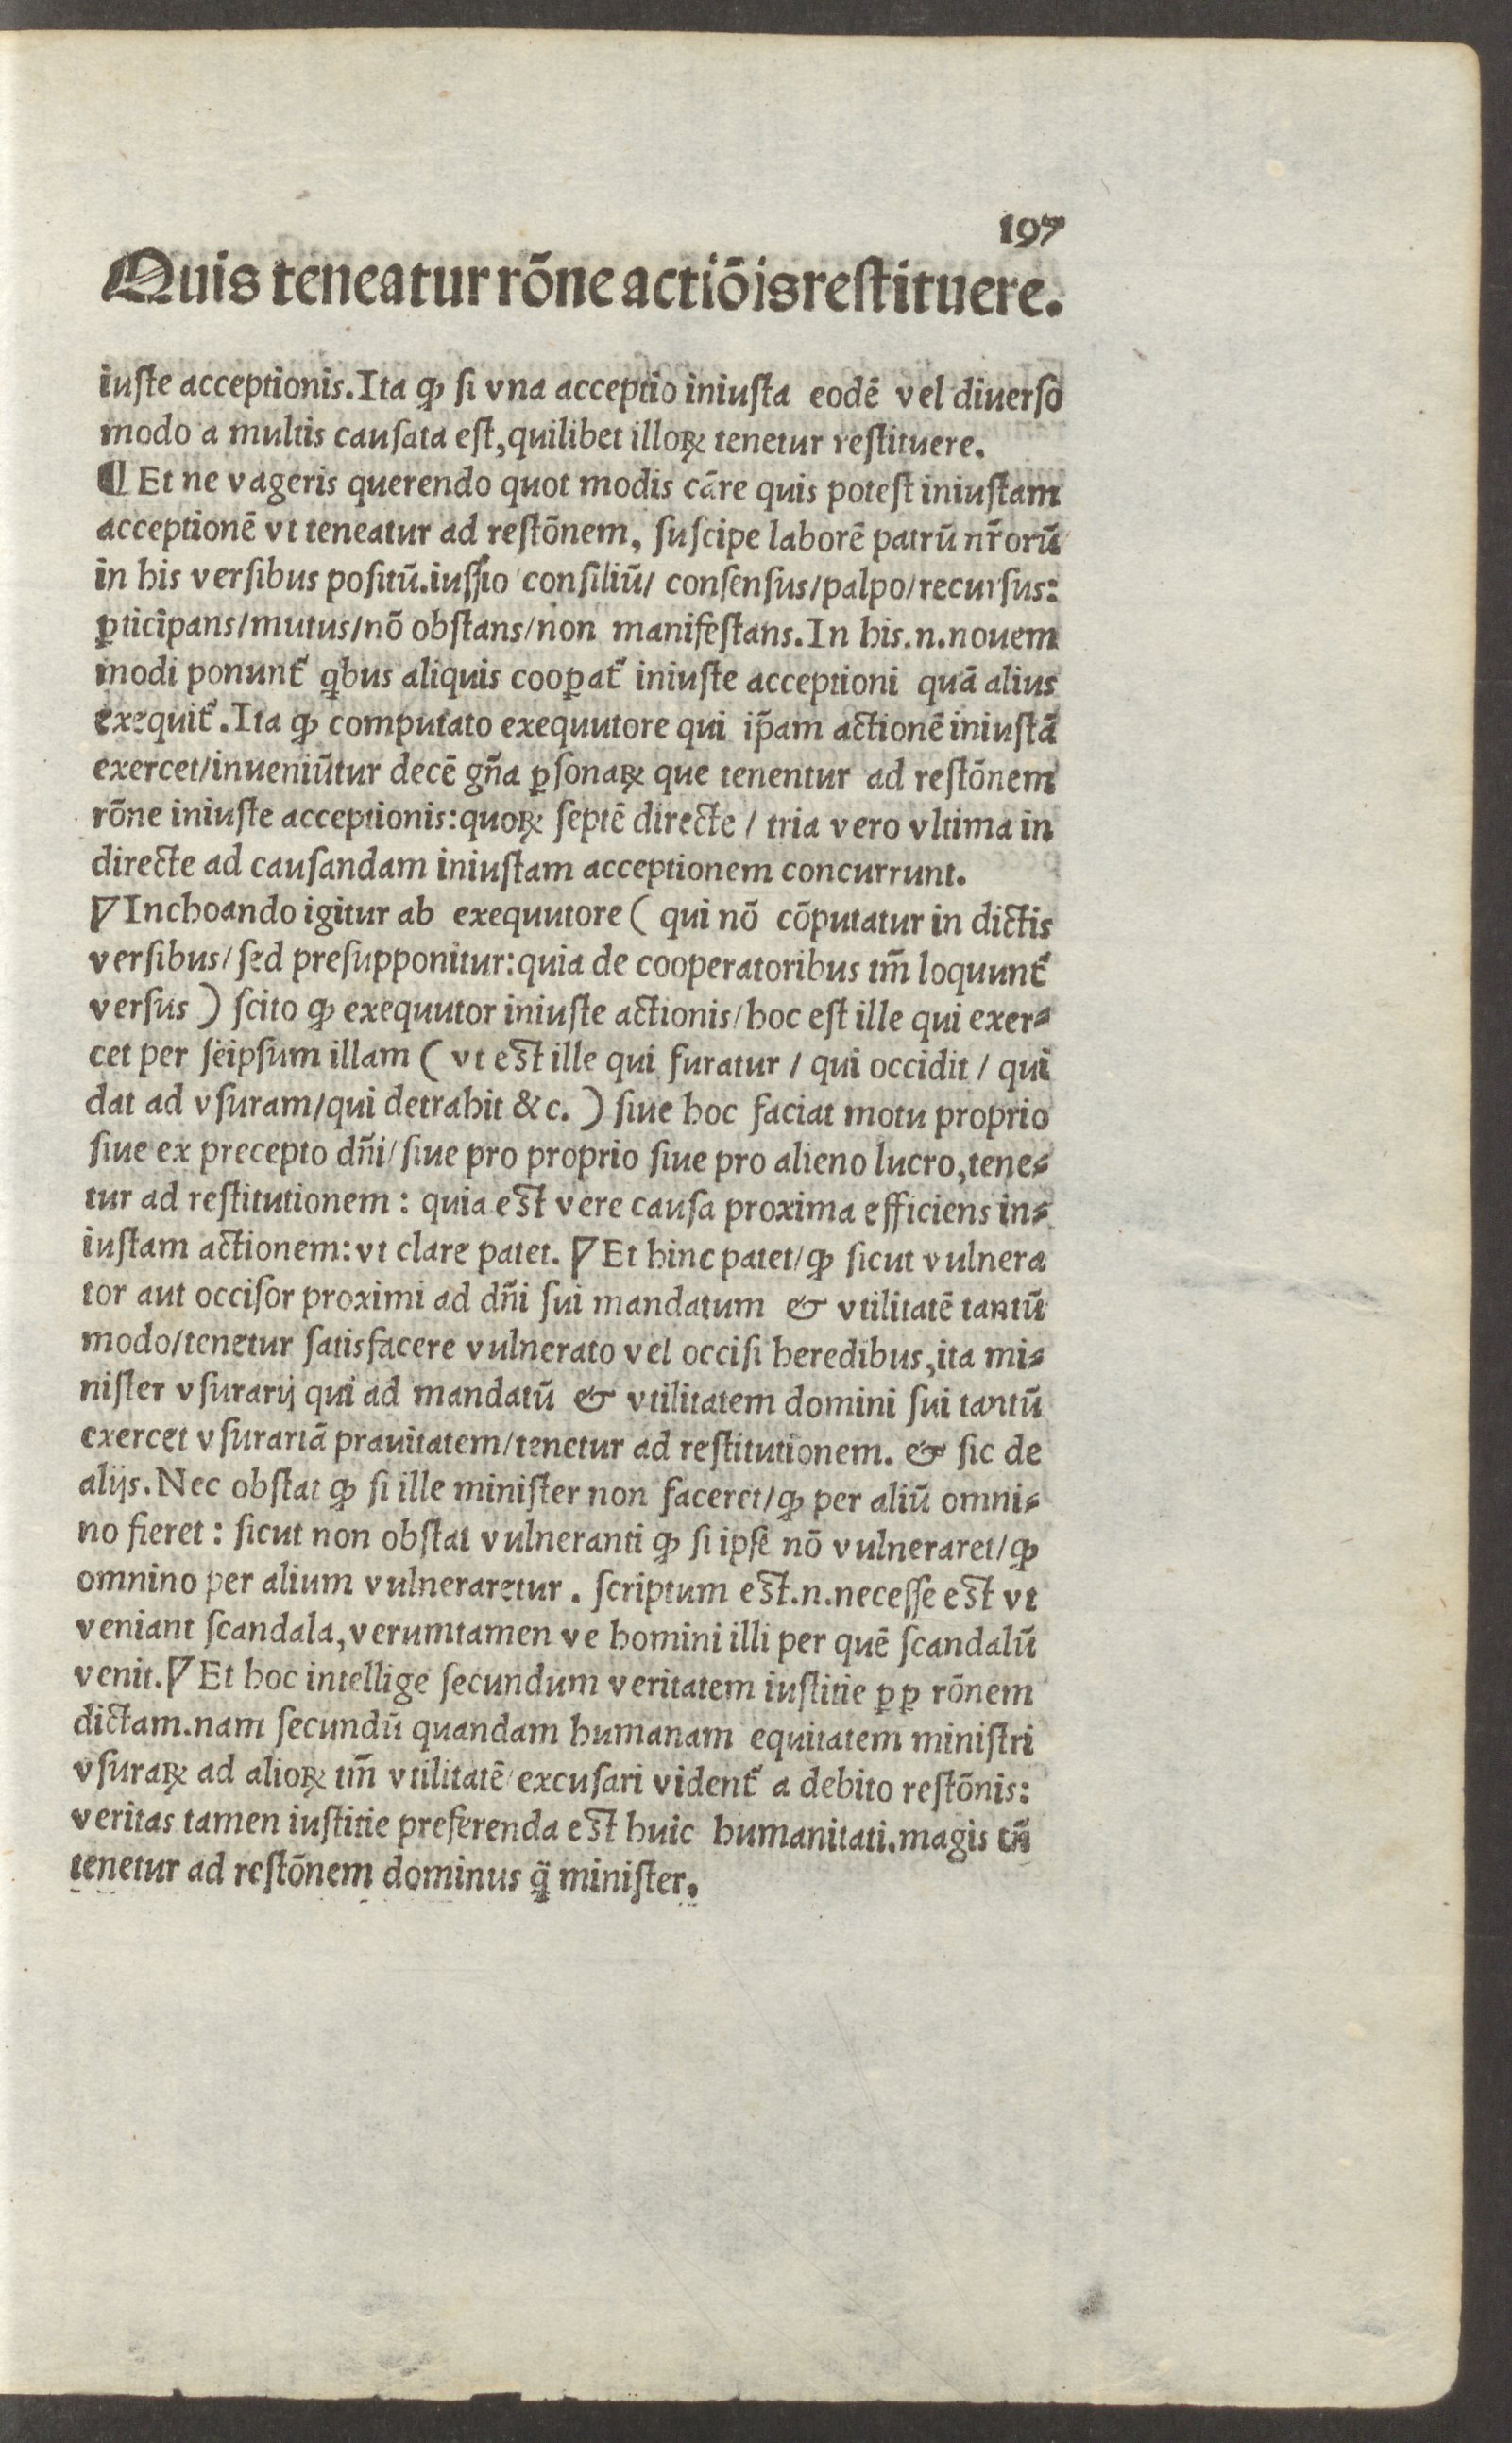 197
Quis teneatur rōne actiōis restituere.
iuſte acceptionis. Ita ꝙ ſi vna acceptio iniuſta eodē vel diuerſo
modo a multis cauſata eſt, quilibet illoꝝ tenetur reſtituere.
¶ Et ne vageris querendo quot modis cāre quis poteſt iniuſtam
acceptionē vt teneatur ad reſtōnem, ſuſcipe laborē patrū nr̄orū
in his verſibus poſitū. iuſſio conſiliū/ conſenſus/ palpo/ recurſus:
ꝑticipans/ mutus/ nō obſtans/ non manifeſtans. In his .n. nouem
modi ponunt᷑ qͥbus aliquis cooꝑat᷑ iniuſte acceptioni quā alius
exequit᷑. Ita ꝙ computato exequutore qui ip̄am actionē iniuſtā
exercet/ inueniūtur decē gn̄a ꝑſonaꝝ que tenentur ad reſtōnem
rōne iniuſte acceptionis: quoꝝ ſeptē directe / tria vero vltima in
directe ad cauſandam iniuſtam acceptionem concurrunt.
▽ Inchoando igitur ab exequutore ( qui nō cōputatur in dictis
verſibus/ ſed preſupponitur: quia de cooperatoribus tm̄ loquunt᷑
verſus ) ſcito ꝙ exequutor iniuſte actionis/ hoc eſt ille qui exer⸗
cet per ſeipſum illam ( vt eſt ille qui furatur / qui occidit / qui
dat ad vſuram/ qui detrahit &c. ) ſiue hoc faciat motu proprio
ſiue ex precepto dn̄i/ ſiue pro proprio ſiue pro alieno lucro, tene⸗
tur ad reſtitutionem : quia eſt vere cauſa proxima efficiens in⸗
iuſtam actionem: vt clare patet. ▽ Et hinc patet/ ꝙ ſicut vulnera
tor aut occiſor proximi ad dn̄i ſui mandatum & vtilitatē tantū
modo/ tenetur ſatisfacere vulnerato vel occiſi heredibus, ita mi⸗
niſter vſurarij qui ad mandatū & vtilitatem domini ſui tantū
exercet vſurariā prauitatem/ tenetur ad reſtitutionem. & ſic de
alijs. Nec obſtat ꝙ ſi ille miniſter non faceret/ ꝙ per aliū omni⸗
no fieret : ſicut non obſtat vulneranti ꝙ ſi ipſe nō vulneraret/ ꝙ
omnino per alium vulneraretur . ſcriptum eſt .n. neceſſe eſt vt
veniant ſcandala, verumtamen ve homini illi per quē ſcandalū
venit. ▽ Et hoc intellige ſecundum veritatem iuſtitie ꝓꝑ rōnem
dictam. nam ſecundū quandam humanam equitatem miniſtri
vſuraꝝ ad alioꝝ tm̄ vtilitatē/ excuſari vident᷑ a debito reſtōnis:
veritas tamen iuſtitie preferenda eſt huic humanitati. magis tn̄
tenetur ad reſtōnem dominus q̈ miniſter.